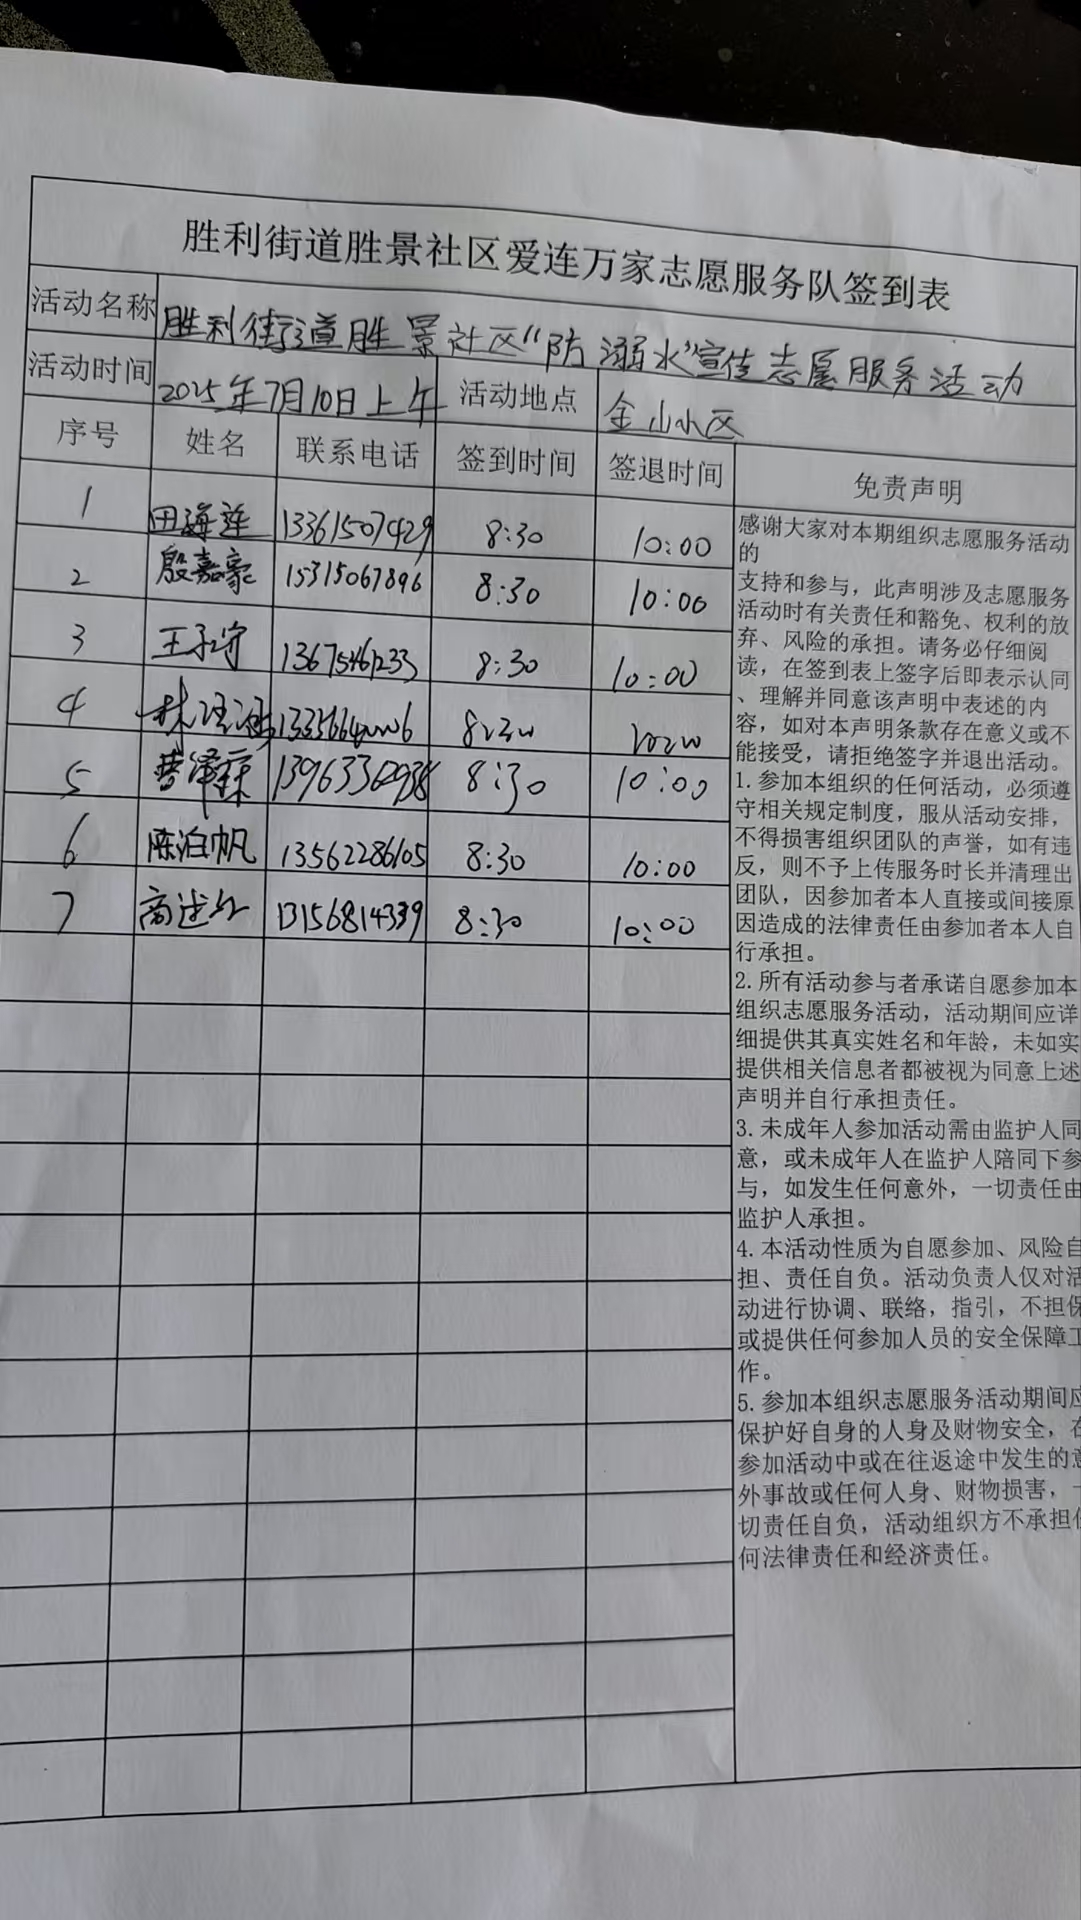 胜利街道胜景社区爱连万家志愿服务队签到表
活动名称 胜利街道胜景社区“防溺水”宣传志愿服务活动
活动时间 2025年7月10日上午 活动地点 金山小区
序号 姓名 联系电话 签到时间 签退时间 免责声明
1 田海莲 13361507429 8:30 10:00
2 殷嘉豪 15315067896 8:30 10:00
3 王子守 13675461233 8:30 10:00
4 林 8:30
5 曹泽霖 13963362938 8:30 10:00
6 陈泊帆 13562286105 8:30 10:00
7 商 13156814339 8:30 10:00
感谢大家对本期组织志愿服务活动
的
支持和参与，此声明涉及志愿服务
活动时有关责任和豁免、权利的放
弃、风险的承担。请务必仔细阅
读，在签到表上签字后即表示认同
、理解并同意该声明中表述的内
容，如对本声明条款存在意义或不
能接受，请拒绝签字并退出活动。
1. 参加本组织的任何活动，必须遵
守相关规定制度，服从活动安排，
不得损害组织团队的声誉，如有违
反，则不予上传服务时长并清理出
团队，因参加者本人直接或间接原
因造成的法律责任由参加者本人自
行承担。
2. 所有活动参与者承诺自愿参加本
组织志愿服务活动，活动期间应详
细提供其真实姓名和年龄，未如实
提供相关信息者都被视为同意上述
声明并自行承担责任。
3. 未成年人参加活动需由监护人同
意，或未成年人在监护人陪同下参
与，如发生任何意外，一切责任由
监护人承担。
4. 本活动性质为自愿参加、风险自
担、责任自负。活动负责人仅对活
动进行协调、联络，指引，不担保
或提供任何参加人员的安全保障工
作。
5. 参加本组织志愿服务活动期间应
保护好自身的人身及财物安全，在
参加活动中或在往返途中发生的意
外事故或任何人身、财物损害，一
切责任自负，活动组织方不承担任
何法律责任和经济责任。